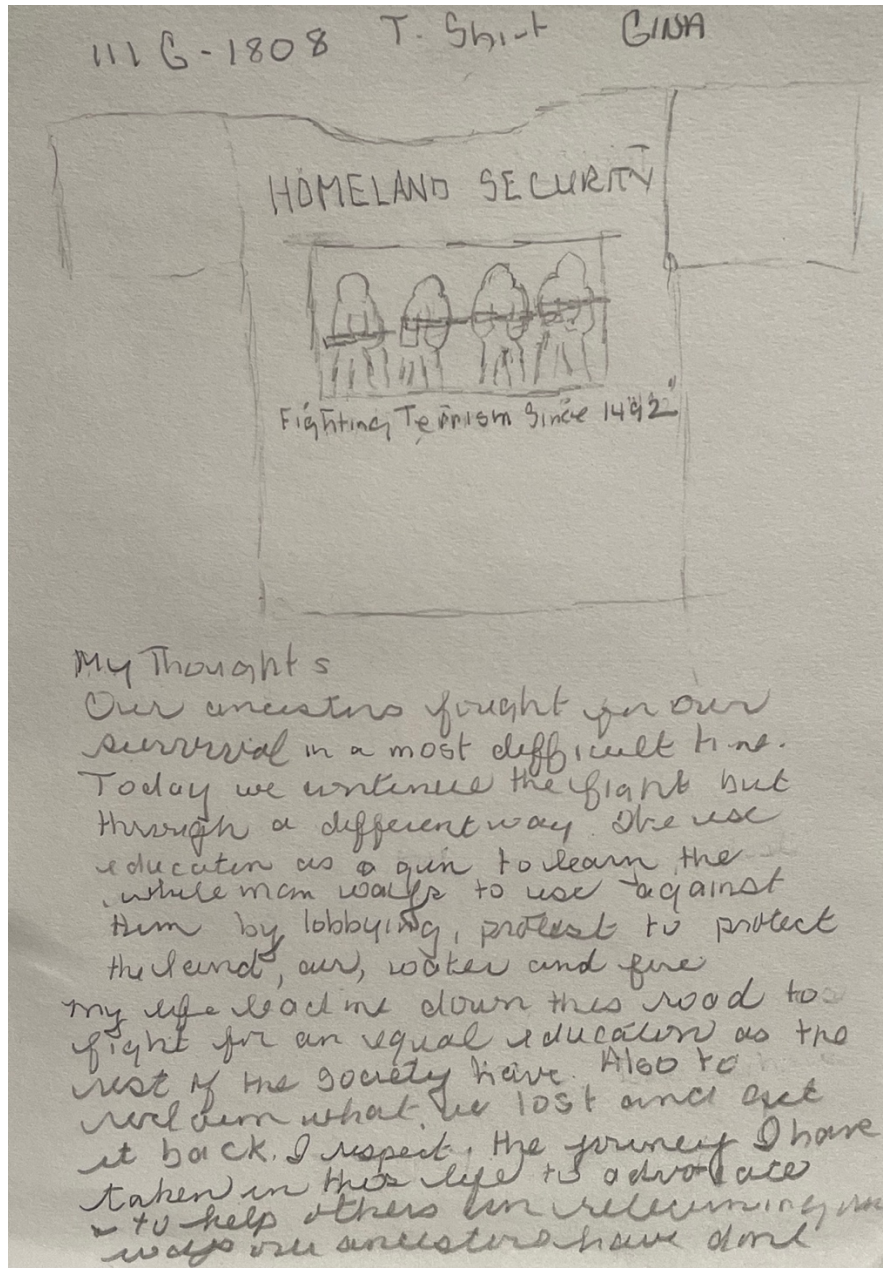 III G-1808 T. Shirt GINA
HOMELAND SECURITY
Fighting Terrism Since 1492"
My Thoughts
Our ancestors fought for our
survival in a most difficult time.
Today we continue the fight but
through a different way. We use
education as a gun to learn the
white man ways to use against
them by lobbying, protest to protect
the land, air, water and fire
my life lead me down this road to
fight for an equal education as the
rest of the society have. Also to
reclaim what we lost and get
it back. I respect, the journey I have
taken in this life to advocate
to help others in
ways our ancestors have done